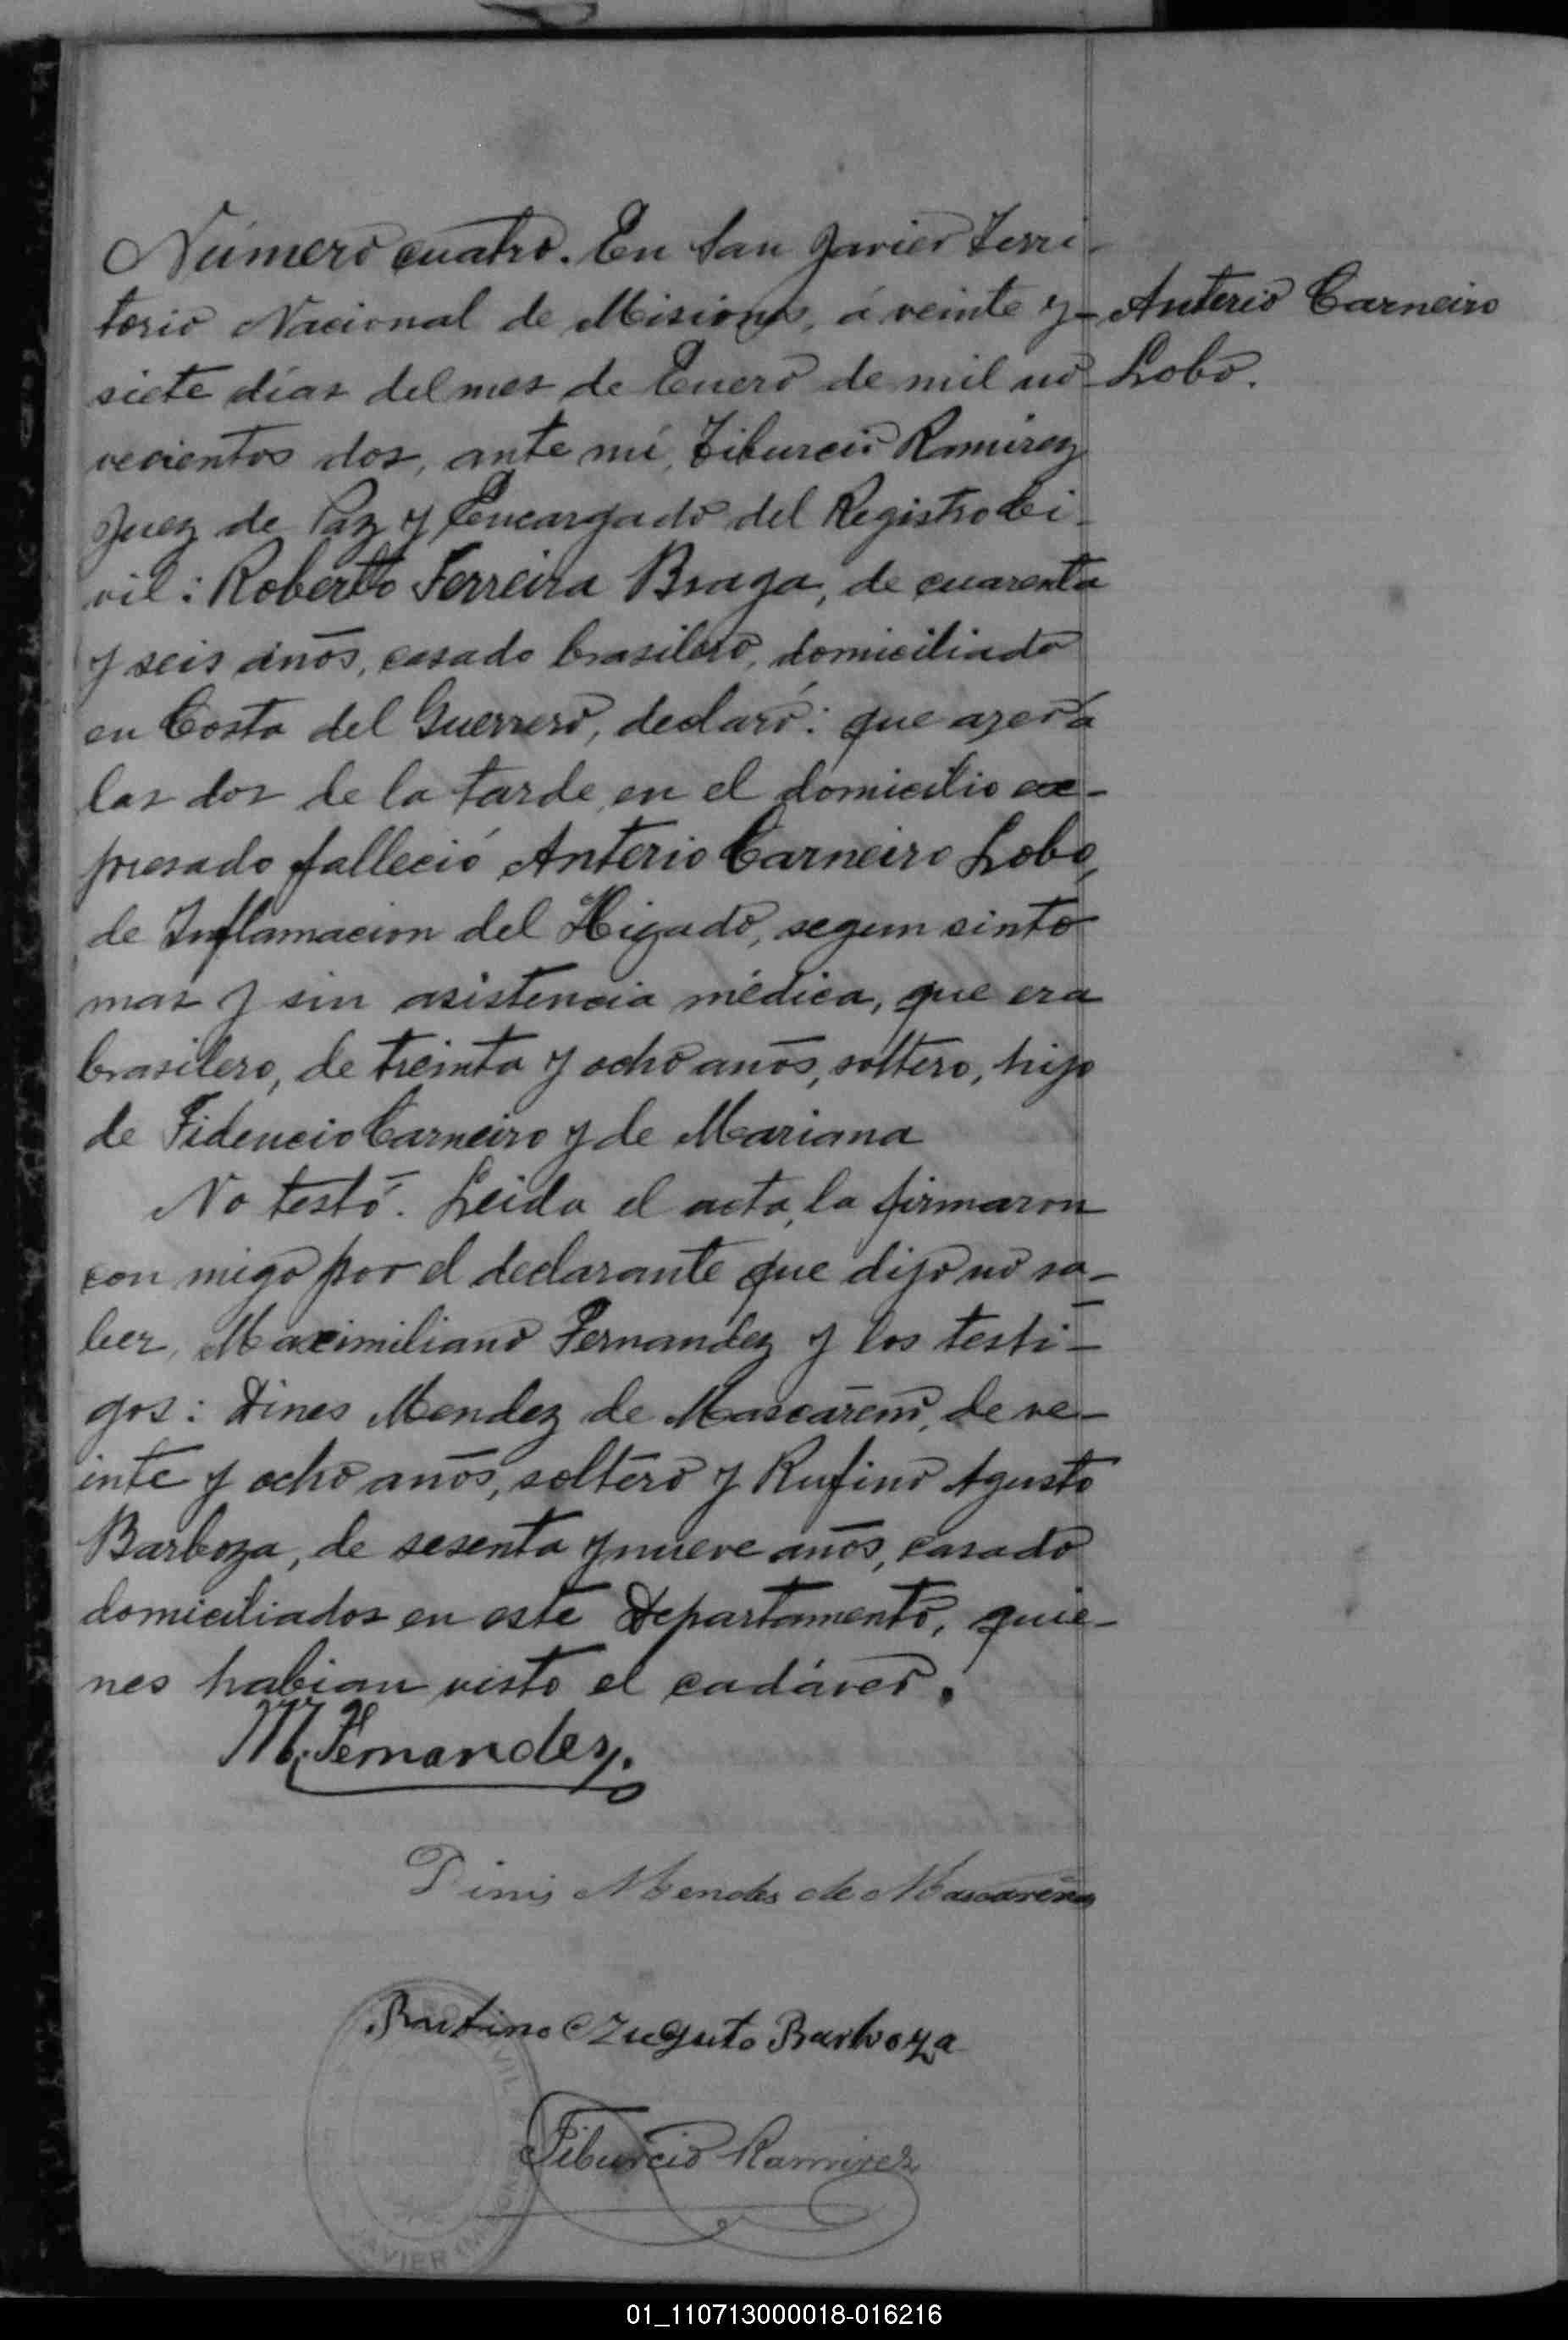 Número cuatro. En San Javier Terri-
torio Nacional de Misiones, á veinte y-
siete días del mes de Enero de mil no-
vecientos dos, ante mí, Tiburcio Ramirez
Juez de Paz y Encargado del Registro Ci-
vil: Roberto Ferreira Braga, de cuarenta
y seis años, casado brasilero, domiciliado
en Costa del Guerrero, declaró: que ayer á
las dos de la tarde, en el domicilio ex-
presado falleció Anterio Carneiro Lobo,
de Inflamacion del Higado, segun sinto
mas y sin asistencia médica, que era
brasilero, de treinta y ocho años, soltero, hijo
de Fidencio Carneiro y de Mariana
No testó. Leida el acta, la firmaron
con migo por el declarante que dijo no sa-
ber, Maximiliano Fernandez y los testi-
gos: Dines Mendez de Mascareño, de ve-
inte y ocho años, soltero y Rufino Agusto
Barboza, de sesenta y nueve años, casado
domiciliados en este Departamento, quie-
nes habian visto el cadáver.
Anterio Carneiro
Lobo.
M. Fernandez.
Dinis Mendes de Mascareñas
Rufino Augusto Barboza
Tiburcio Ramirez
JAVIER
01_110713000018-016216